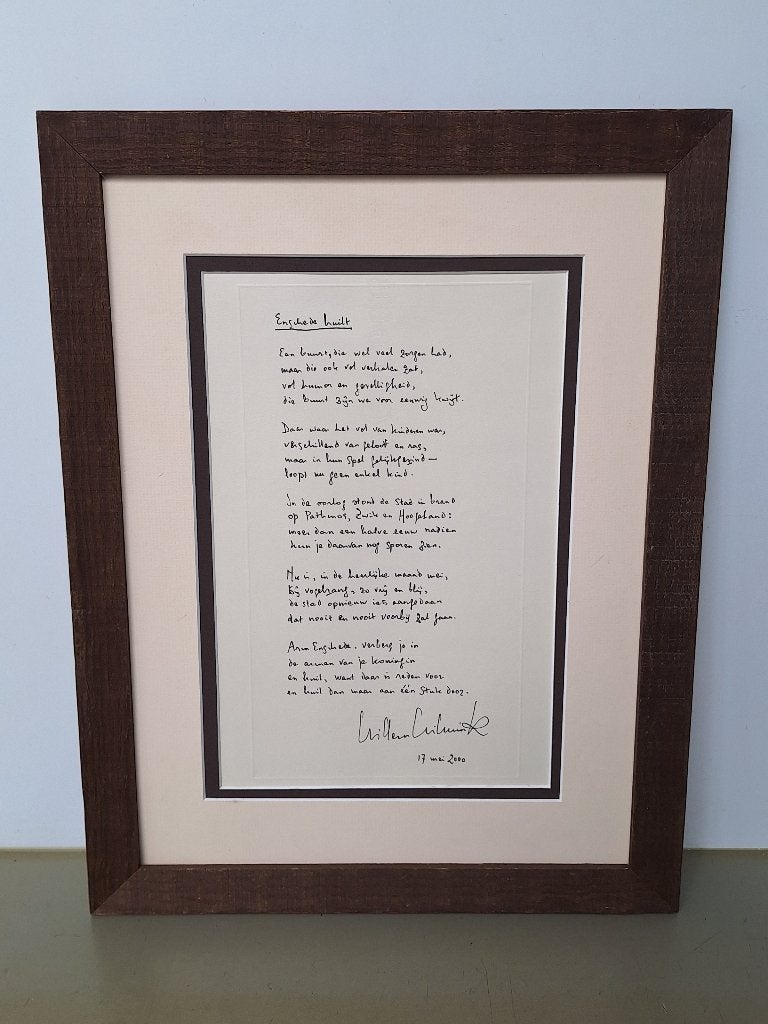 Enschede huilt
Een buurt, die wel veel zorgen had,
maar die ook vol verhalen zat,
vol humor en gezelligheid,
die buurt zijn we voor eeuwig kwijt.
Daar waar het vol van kinderen was,
verschillend van geloof en ras,
maar in hun spel gelijkgezind —
loopt nu geen enkel kind.
In de oorlog stond de stad in brand
op Pathmos, Zwik en Hogeland:
meer dan een halve eeuw nadien
kun je daarvan nog sporen zien.
Nu is, in de heerlijke maand mei,
bij vogelzang, zo vrij en blij,
de stad opnieuw iets aangedaan
dat nooit en nooit voorbij zal gaan.
Arm Enschede, verberg je in
de armen van je koningin
en huil, want daar is reden voor
en huil dan maar aan één stuk door.
Willem Wilmink
17 mei 2000